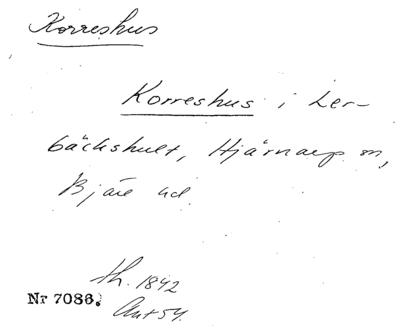 Korreshus
Korreshus i Ler-
bäckshult, Hjärnarp sn,
Bjäre hd.
th. 1842
Nr 7086.
Ant 54.